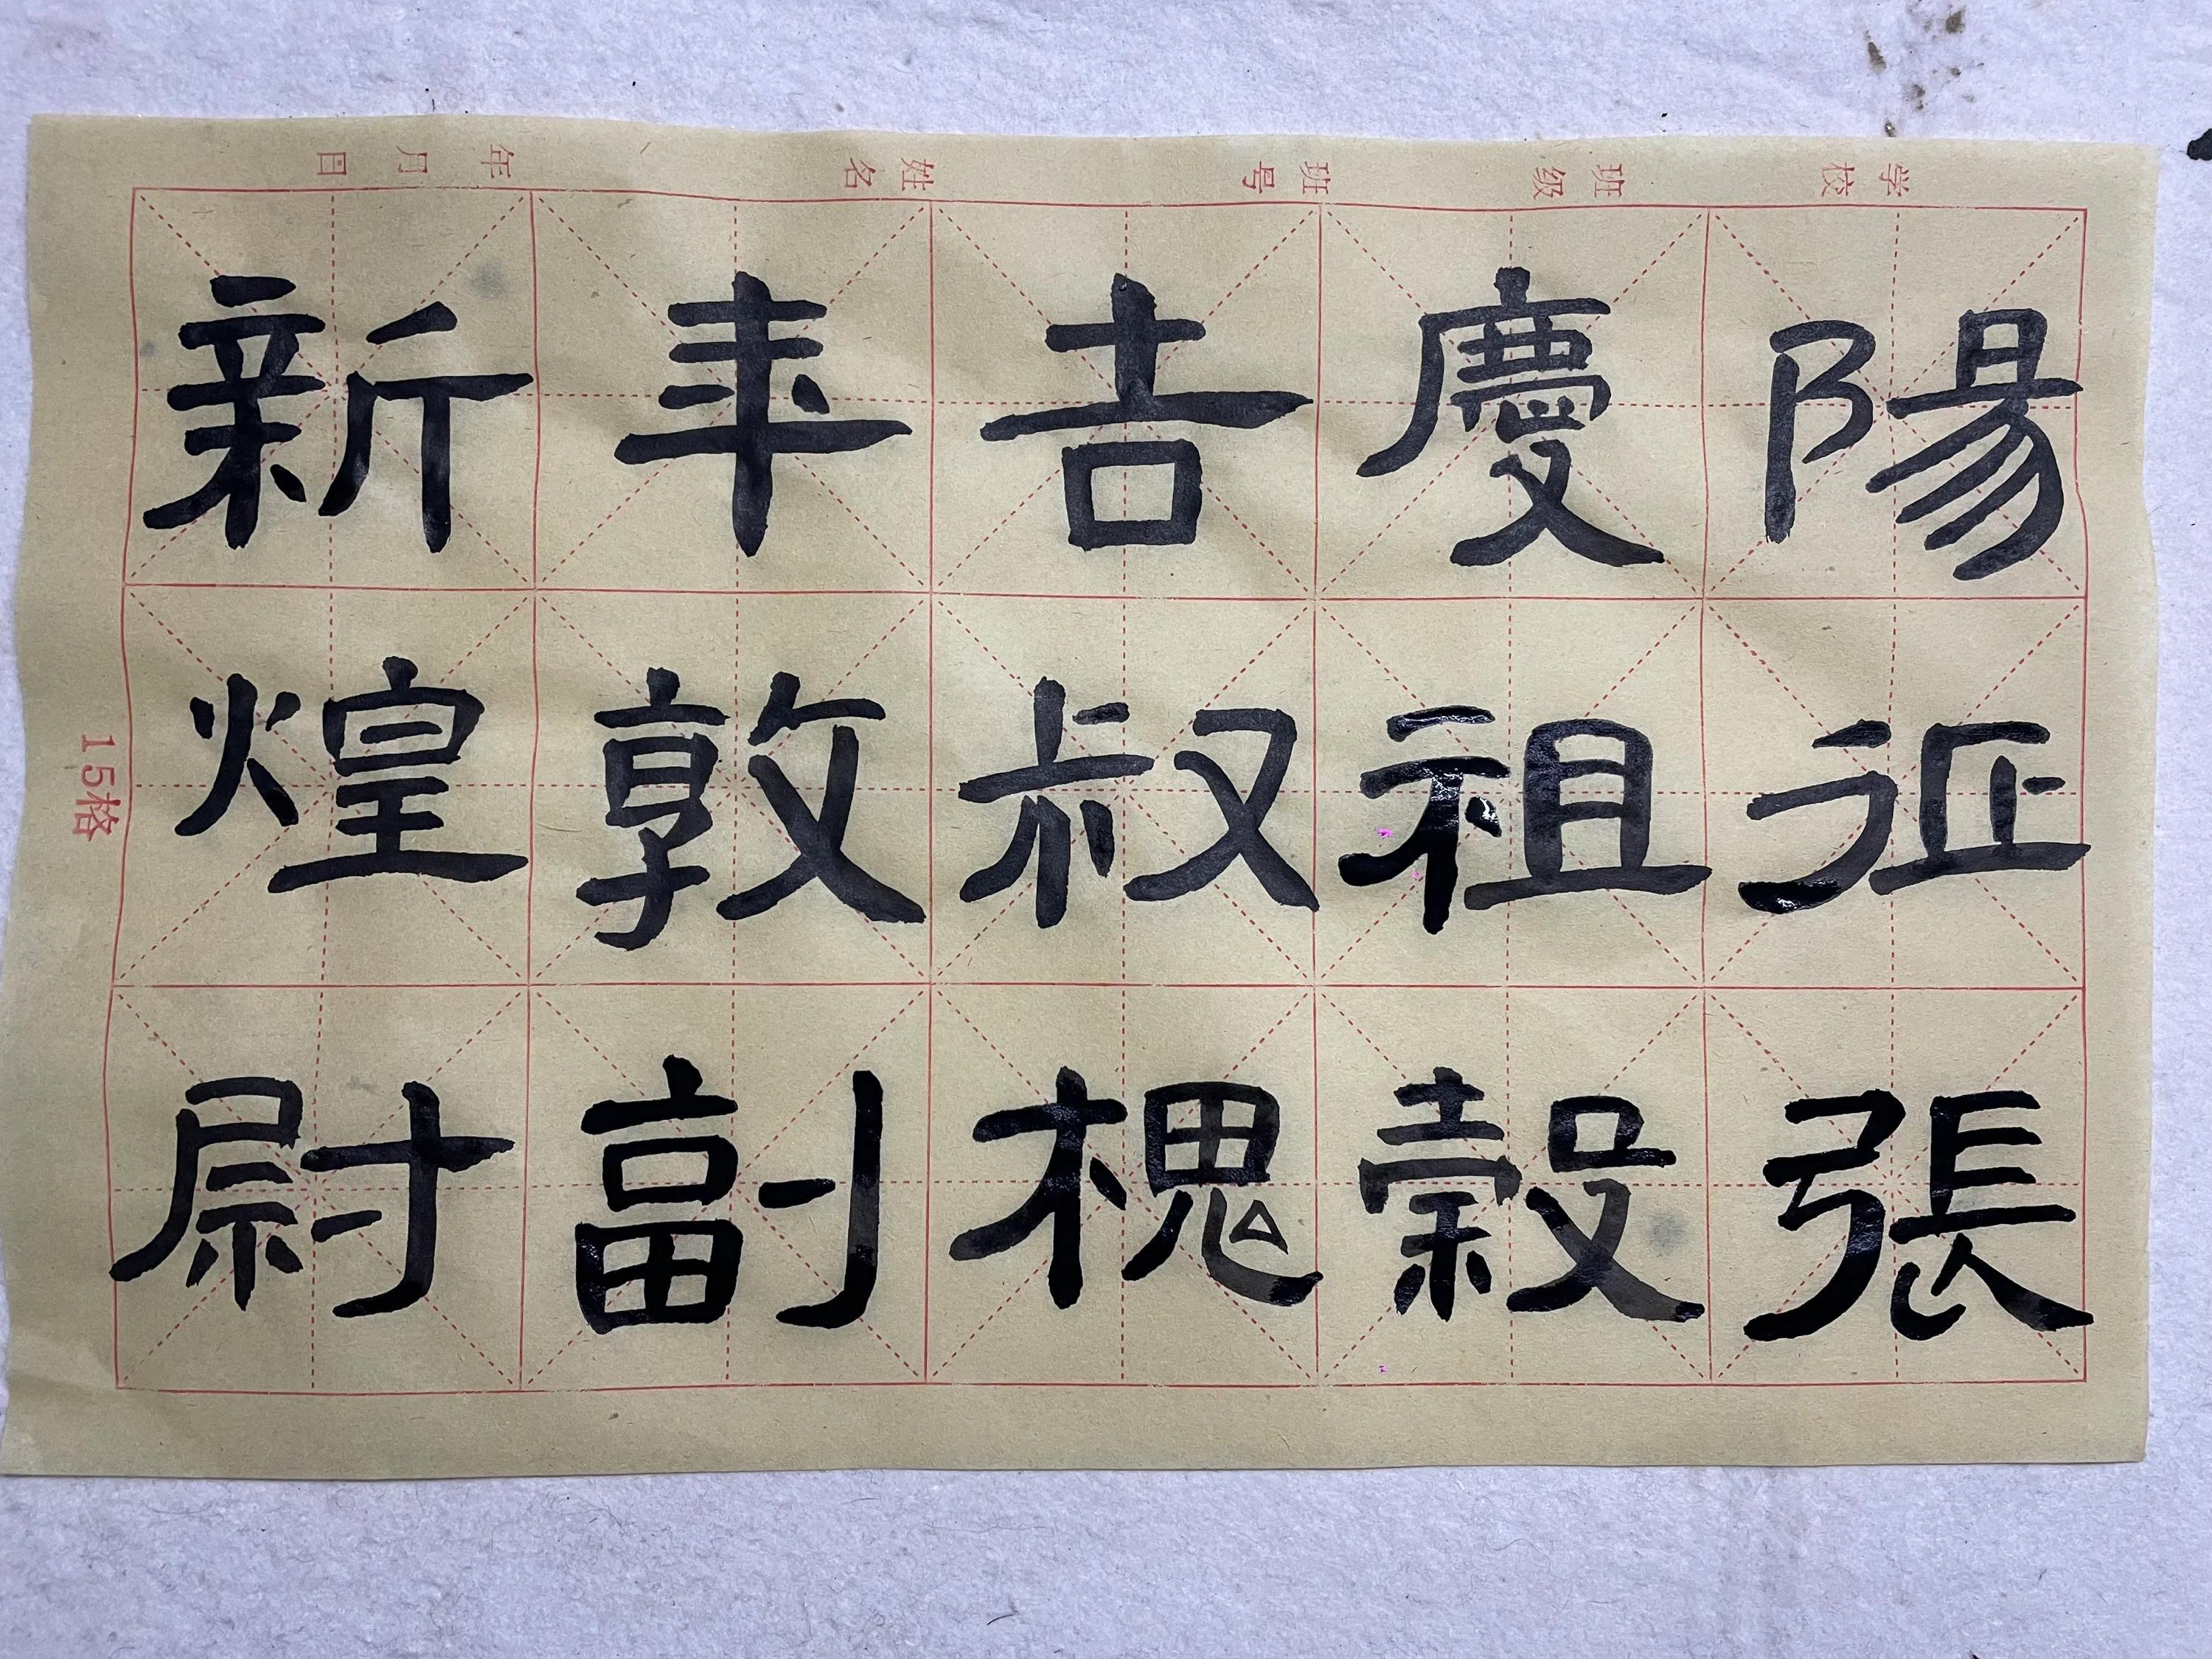 学校 班级 班号 姓名 年 月 日
新年吉慶陽
煌敦叔祖征
尉副槐穀張
15格